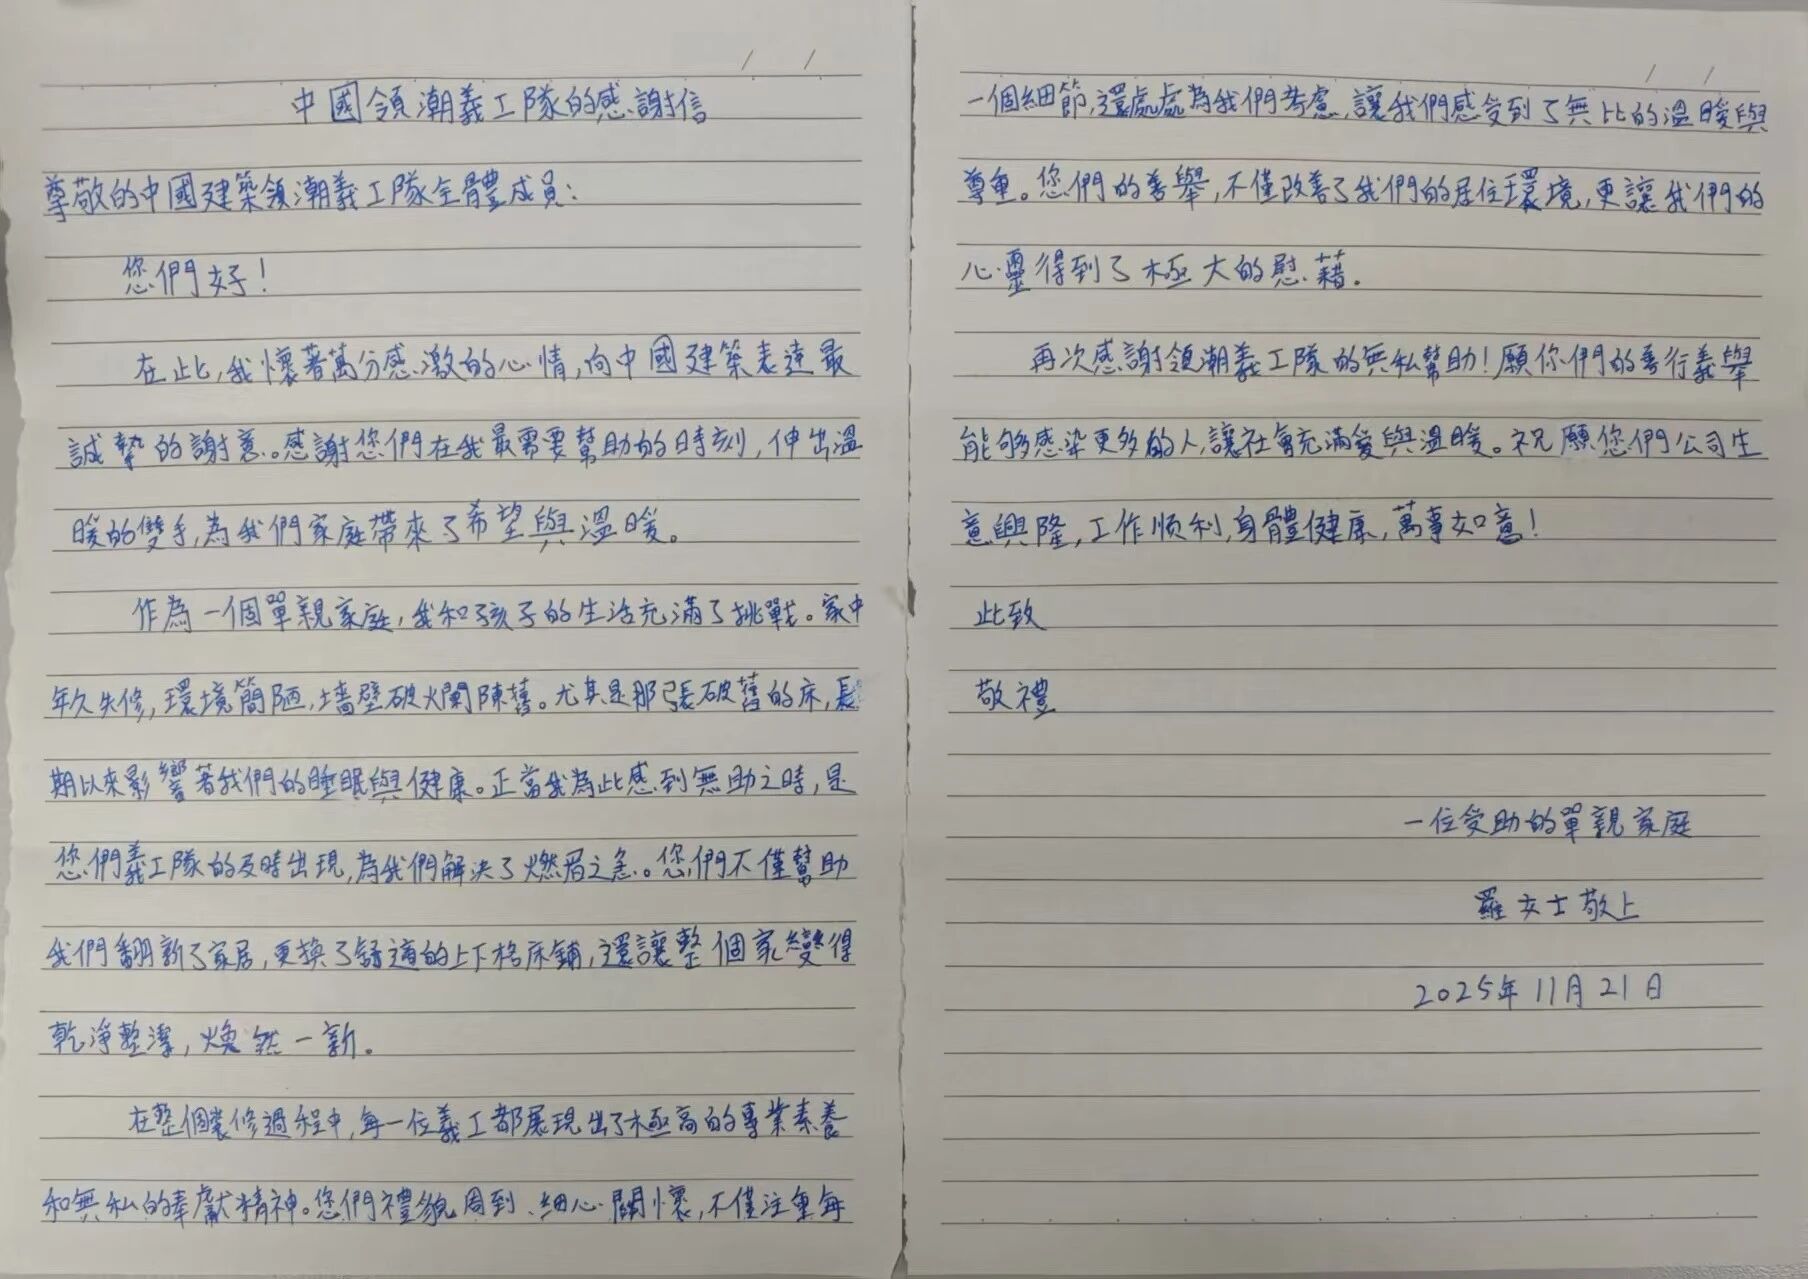 中國領潮義工隊的感謝信
尊敬的中國建築領潮義工隊全體成員：
您們好！
在此，我懷著萬分感激的心情，向中國建築表達最
誠摯的謝意。感謝您們在我最需要幫助的時刻，伸出溫
暖的雙手，為我們家庭帶來了希望與溫暖。
作為一個單親家庭，我和孩子的生活充滿了挑戰。家中
年久失修，環境簡陋，墻壁破爛陳舊。尤其是那張破舊的床，長
期以來影響著我們的睡眠與健康。正當我為此感到無助之時，是
您們義工隊的及時出現，為我們解決了燃眉之急。您們不僅幫助
我們翻新了家居，更換了舒適的上下格床鋪，還讓整個家變得
乾淨整潔，煥然一新。
在整個裝修過程中，每一位義工都展現出了極高的專業素養
和無私的奉獻精神。您們禮貌周到、細心關懷，不僅注重每
一個細節，還處處為我們考慮，讓我們感受到了無比的溫暖與
尊重。您們的善舉，不僅改善了我們的居住環境，更讓我們的
心靈得到了極大的慰藉。
再次感謝領潮義工隊的無私幫助！願你們的善行義舉
能够感染更多的人，讓社會充滿愛與溫暖。祝願您們公司生
意興隆，工作顺利，身體健康，萬事如意！
此致
敬禮
一位受助的單親家庭
羅女士敬上
2025年11月21日